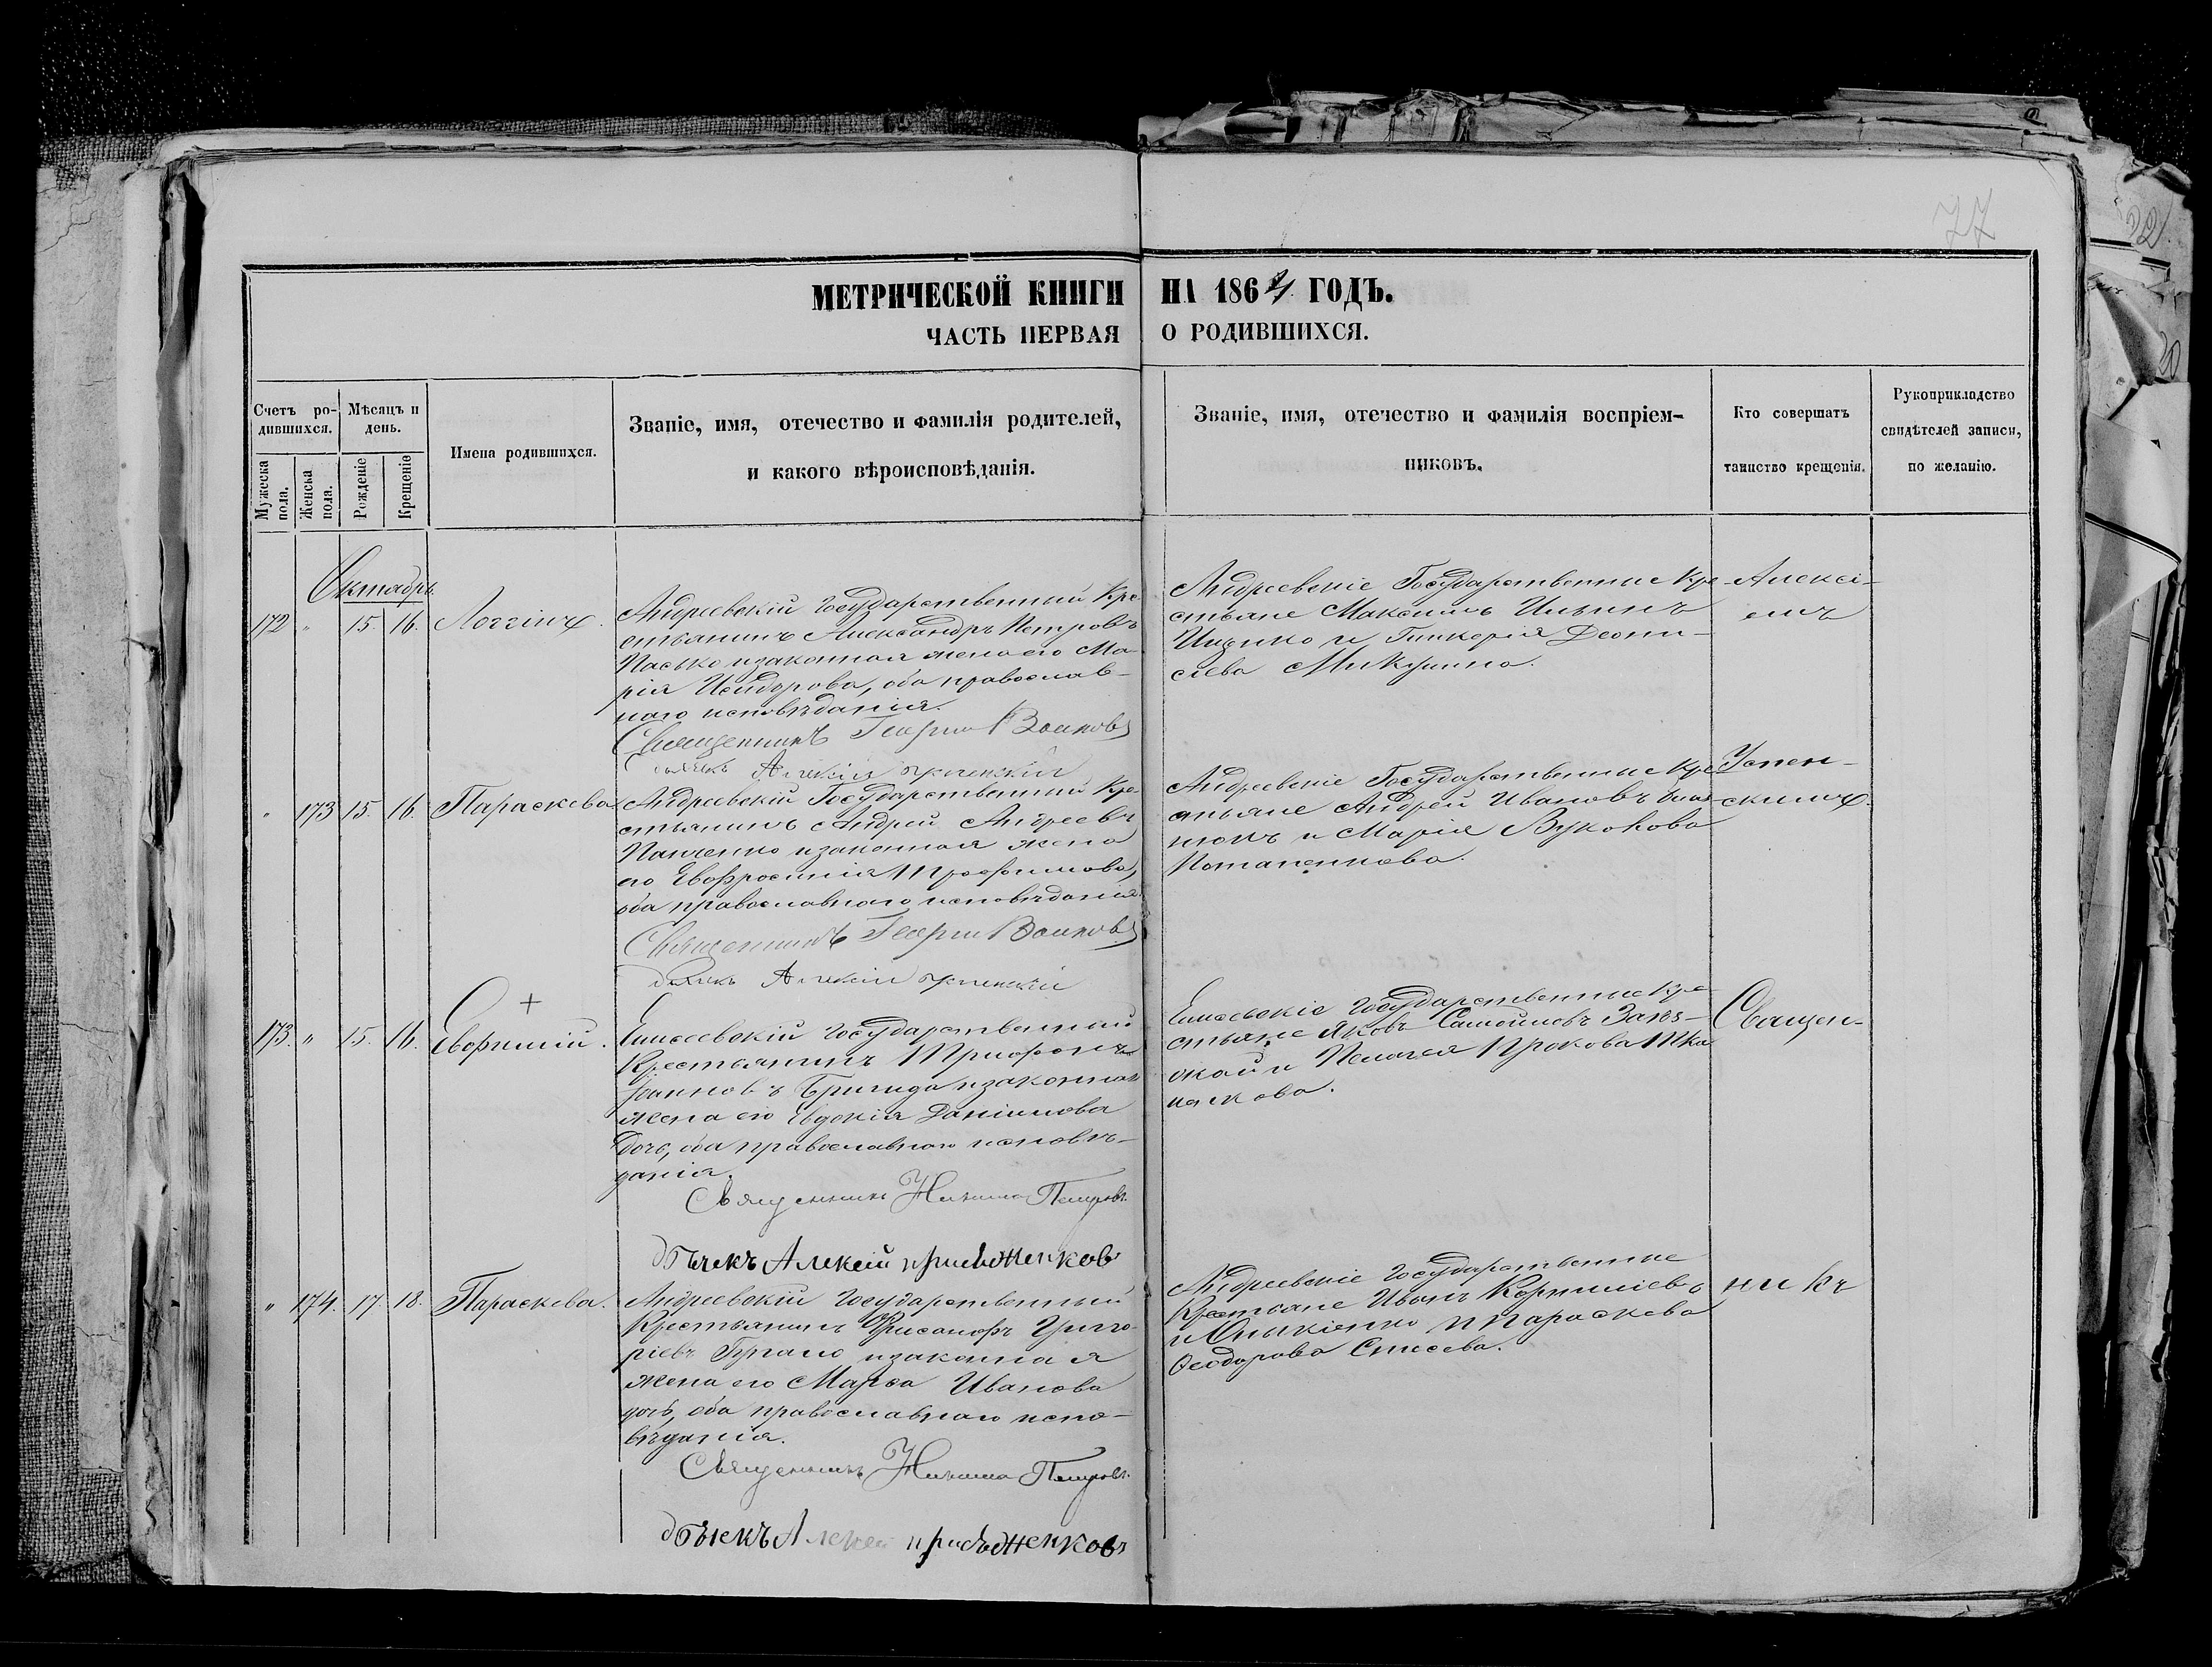 77
МЕТРИЧЕСКОЙ КНИГИ НА 1864 ГОДЪ.
ЧАСТЬ ПЕРВАЯ О РОДИВШИХСЯ.
Счетъ ро-
дившихся.
Мужеска пола.
Женска пола.
Мѣсяцъ и
день.
Рожденіе
Крещеніе
Имена родившихся.
Званіе, имя, отечество и фамилія родителей,
и какого вѣроисповѣданія.
Званіе, имя, отечество и фамилія воспріем-
никовъ.
Кто совершатъ
таинство крещенія.
Рукоприкладство
свидѣтелей записи,
по желанію.
Октябрь
172 " 15. 16. Логгинъ.
Андреевскій государственный кре-
стьянинъ Александръ Петровъ
Пасько и законная жена его Ма-
рія Исидорова, оба православ-
наго исповѣданія.
Священникъ Георгій Волковъ
дьячекъ Алексій
Андреевскіе Государственные кре-
стьяне Максимъ Ильинъ
Ищенко и Гликерія Деони-
сіева Микулина.
Алексі-
емъ
" 173 15. 16. Параскева
Андреевскій Государственный кре-
стьянинъ Андрей Андреевъ
Панченко и законная жена
его Евфросинія Трофимова,
оба православнаго исповѣданія.
Священникъ Георгій Волковъ
дьячекъ Алексій
Андреевскіе Государственные кре-
стьяне Андрей Ивановъ
и Марія
Потапенкова.
Успен-
скимъ.
+
173. " 15. 16. Евфимій.
Елисеевскій государственный
крестьянинъ Трифонъ
Іоанновъ Бригида и законная
жена его Евдокія Даніилова
дочь, оба православнаго исповѣ-
данія.
Священникъ Никита Петровъ.
дьячекъ Алексій
Елисеевскіе государственные кре-
стьяне Яковъ Самойловъ
и Пелагея Прокова
Священ-
" 174. 17. 18. Параскева.
Андреевскій государственный
крестьянинъ Григо-
ріевъ и законная
жена его Марѳа Иванова
дочь, оба православнаго испо-
вѣданія.
Священникъ Никита Петровъ.
дьячекъ Алексей
Андреевскіе государственные
крестьяне Иванъ Корниліевъ
и Параскева
Ѳеодорова
никъ